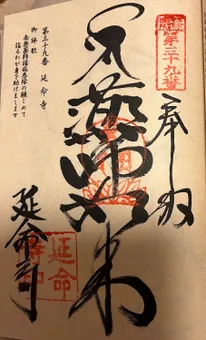 奉納
第三十九番
薬師如来
延命寺
延命
寺印
第三十九番 延命寺
御詠歌
南無薬師諸病悉除の願こめて
詣るわが身を助けましませ